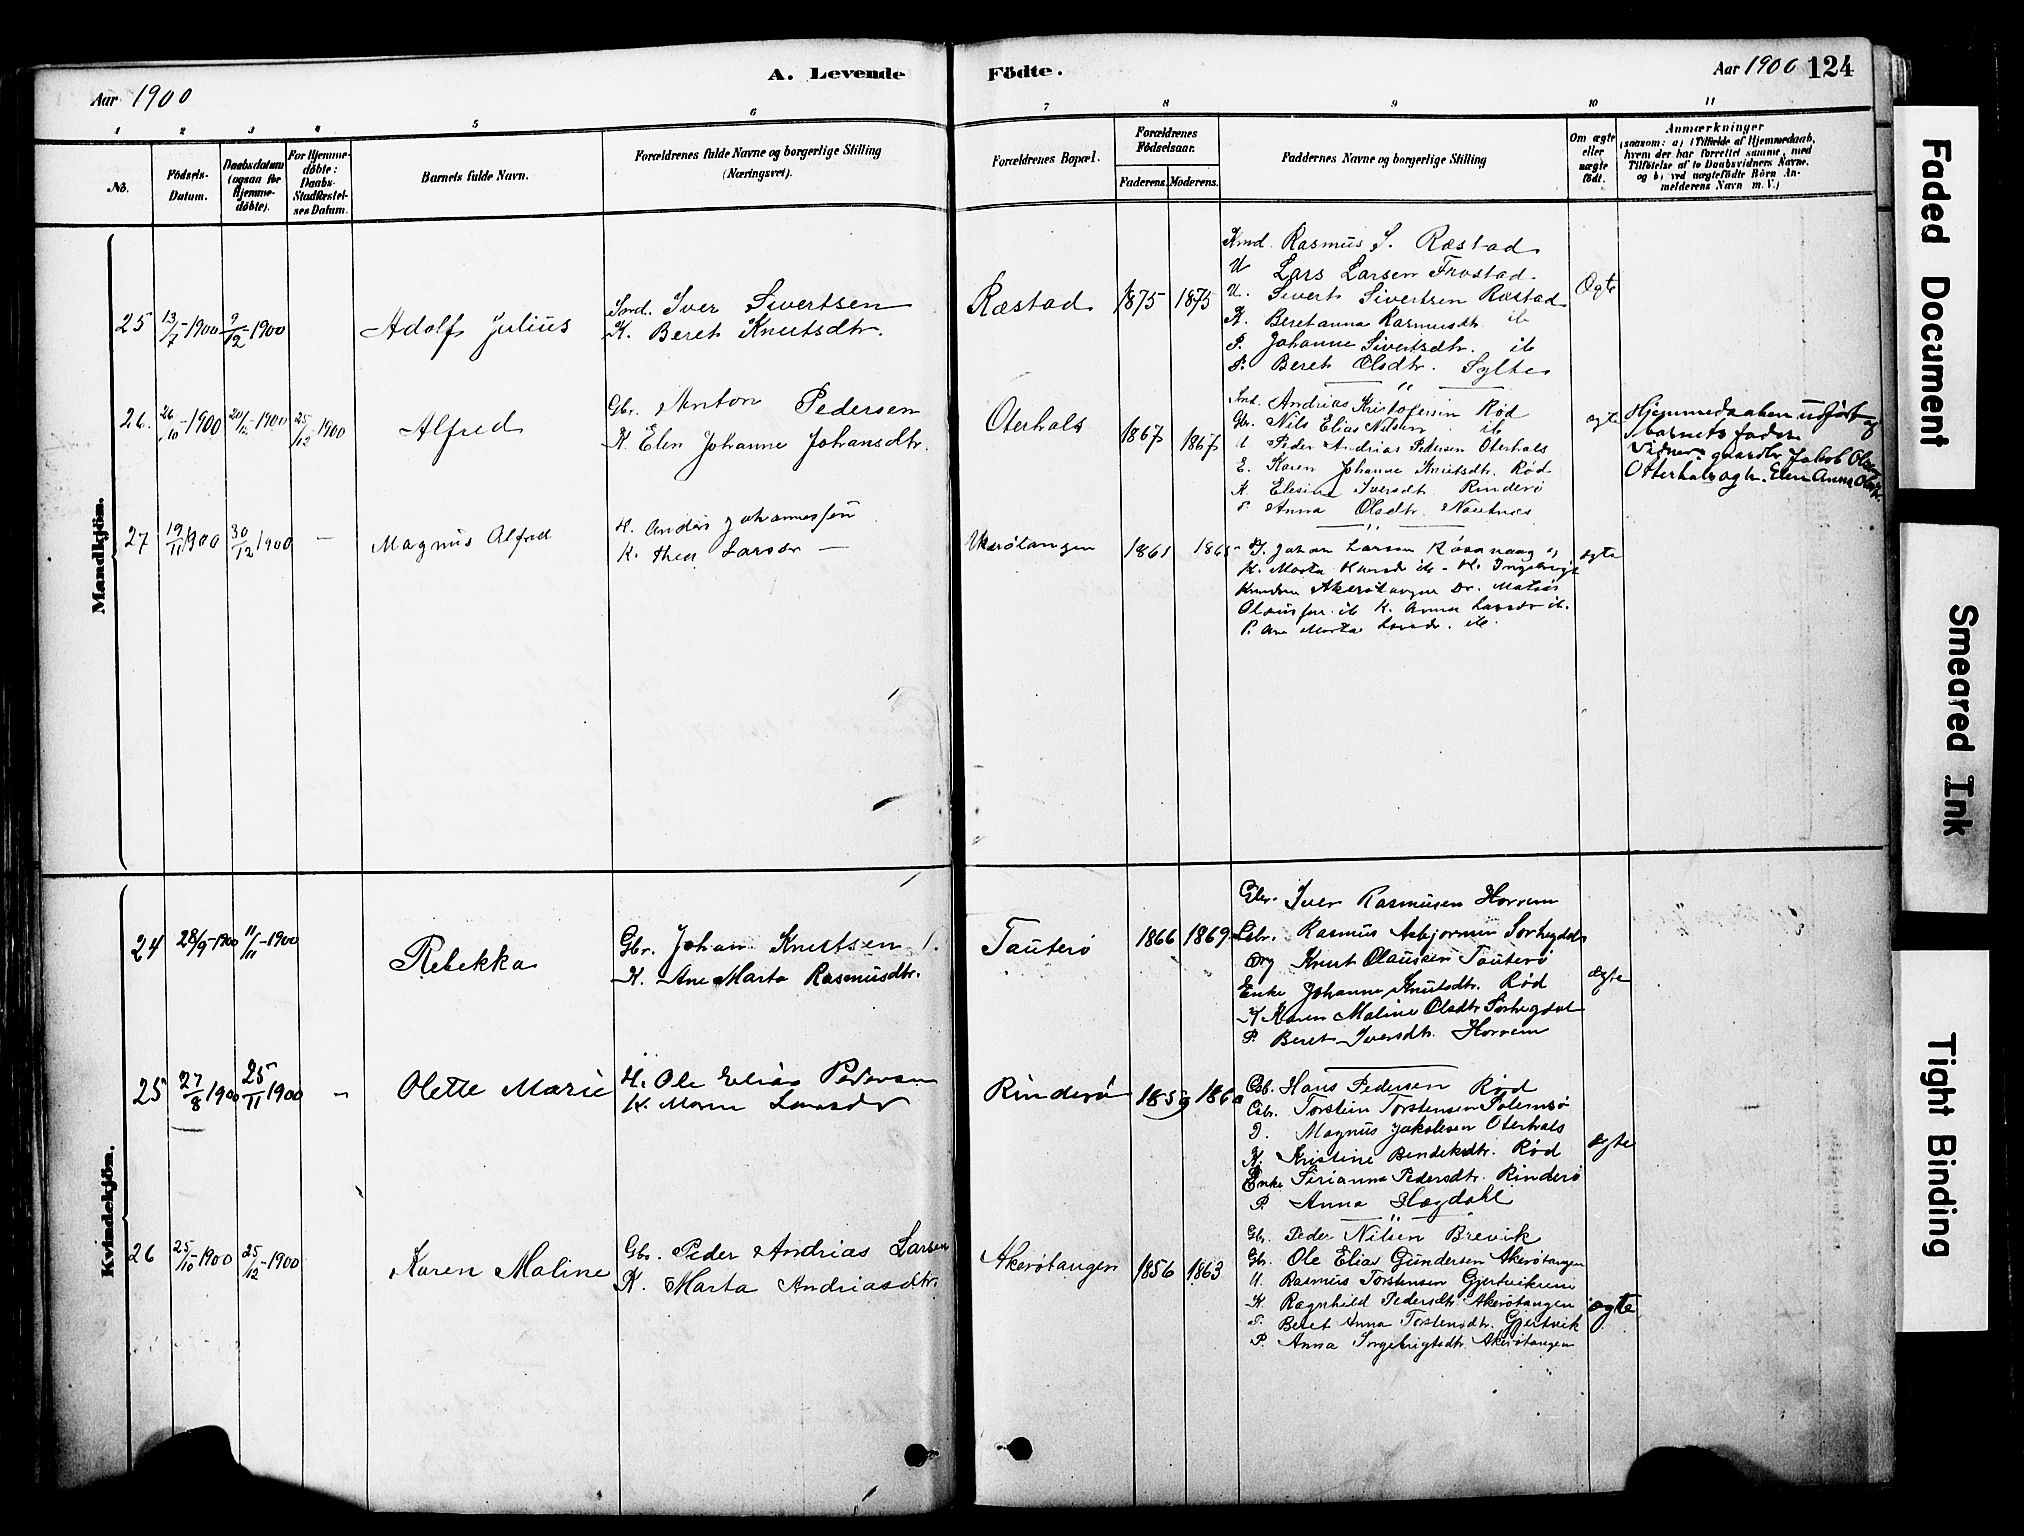 A. Levende
Aar 1900
1 2 3 4 5 6
No.
Födsels-Datum.
Daabsdatum (ogsaa for Hjemme-döbte).
For Hjemme-döbte: Daabs-Stadfæstel-ses Datum.
Barnets fulde Navn.
Forældrenes fulde Navne og borgerlige Stilling (Næringsvei).
Mandkjön.
25 13/7-1900 9/12-1900 Adolf Julius
Iver Sivertsen
K. Beret Knutsdtr.
26. 26/10-1900 20/12-1900 25/12-1900 Alfred
Gbr. Anton Pedersen
K. Elen Johanne Johansdtr.
27 19/11 1900 30/12 1900 — Magnus Alfred
H. Anders Johannessen
K. Thea Larsdr —
Kvindekjön.
24 28/9-1900 11/11-1900 Rebekka
Gbr. Johan Knutsen
K. Ane Marta Rasmusdtr.
25 27/8 1900 25/11 1900 — Olette Marie
H. Ole Elias Pedersen
K. Larsdr
26 25/10-1900 25/12-1900 Karen Maline
Gbr. Peder Andrias Larsen
K. Marta Andriasdtr.
Födte.
Aar 1900 124
7 8 9 10 11
Forældrenes Bopæl.
Forældrenes Födselsaar.
Faderens. Moderens.
Faddernes Navne og borgerlige Stilling
Om ægte eller uægte födt.
Anmærkninger
(saasom: a) i Tilfælde af Hjemmedaab,
hvem der har forrettet samme, med
Tilföielse af to Daabsvidners Navne,
og b) ved uægtefödte Börn An-
melderens Navn m. V.)
Ræstad 1875 1875 Ægte
Rasmus S. Ræstad
U Lars Larsen Frostad
U. Sivert Sivertsen Ræstad
K. Beretanna Rasmusdt ib
P. Johanne Sivertsdtr. ib
P. Beret Olsdtr. Sylte
Oterhals 1867 1867 ægte
Andrias Kristofersen Rød
Gbr. Nils Elias Nilsen ib
U Peder Andrias Pedersen Oterhals
E. Karen Johanne Knutsdtr. Rød
K. Elesina Iversdtr. Rinderö
P. Anna Olsdtr. Nautnes
Hjemmedaaben udført af
barnets fader
Vidner: gaardbr. Jakob Olsen
Otterhals og k. Elen Anna
Akerötangen 1861 ægte
Johan Larsen
K. Marta ib - K. Ingebrigt
Knudsen Akerötangen Dr. Matias
ib K. Anna Larsdr ib.
P. Ane Marta Larsdr. ib.
Tauterö 1866 1869 ægte
Gbr. Iver Rasmusen Horrem
Gbr. Rasmus Asbjornsen
Knut Olausen Tauterö
Enke Johanne Knutsdtr. Rød
K Karen Maline Olsdtr
P. Beret Iversdtr. Horrem
Rinderö 1859 1860 ægte
Gb. Hans Pedersen Rød
Gbr. Torstein Torstensen
D. Magnus Jakobsen Oterhals
K. Kristine Bendiksdtr. Rød
Enke Sirianna Pedersdtr. Rinderö
P. Anna Hægdahl
Akerötangen 1856 1863 ægte
Gb. Peder Nilsen Brevik
Gb. Ole Elias Gundersen Akerötangen
U. Rasmus Torstensen
K. Ragnhild Pedersdtr. Akerötangen
P. Beret Anna Torstensdtr. Gjertvik
P. Anna Ingebrigtsdtr. Akerötangen
Faded Document
Smeared Ink
Tight Binding